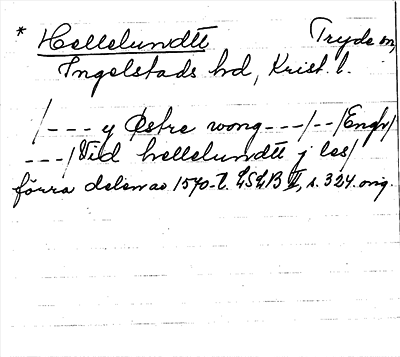 * Hellelundtt Tryde sn,
Ingelstads hd, Krist. l.
/--- y Østre wong ---/--/Engh/
---/Vid hellelundtt j les/
förra delen av 1570-t. LSLB II, s. 324. orig.